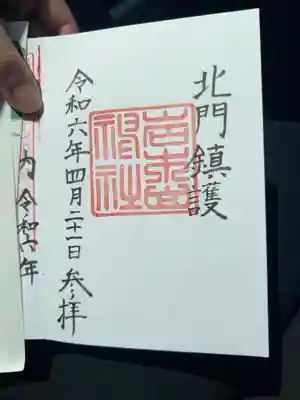 北門鎮護
令和六年四月二十一日参拝
内 令和六年